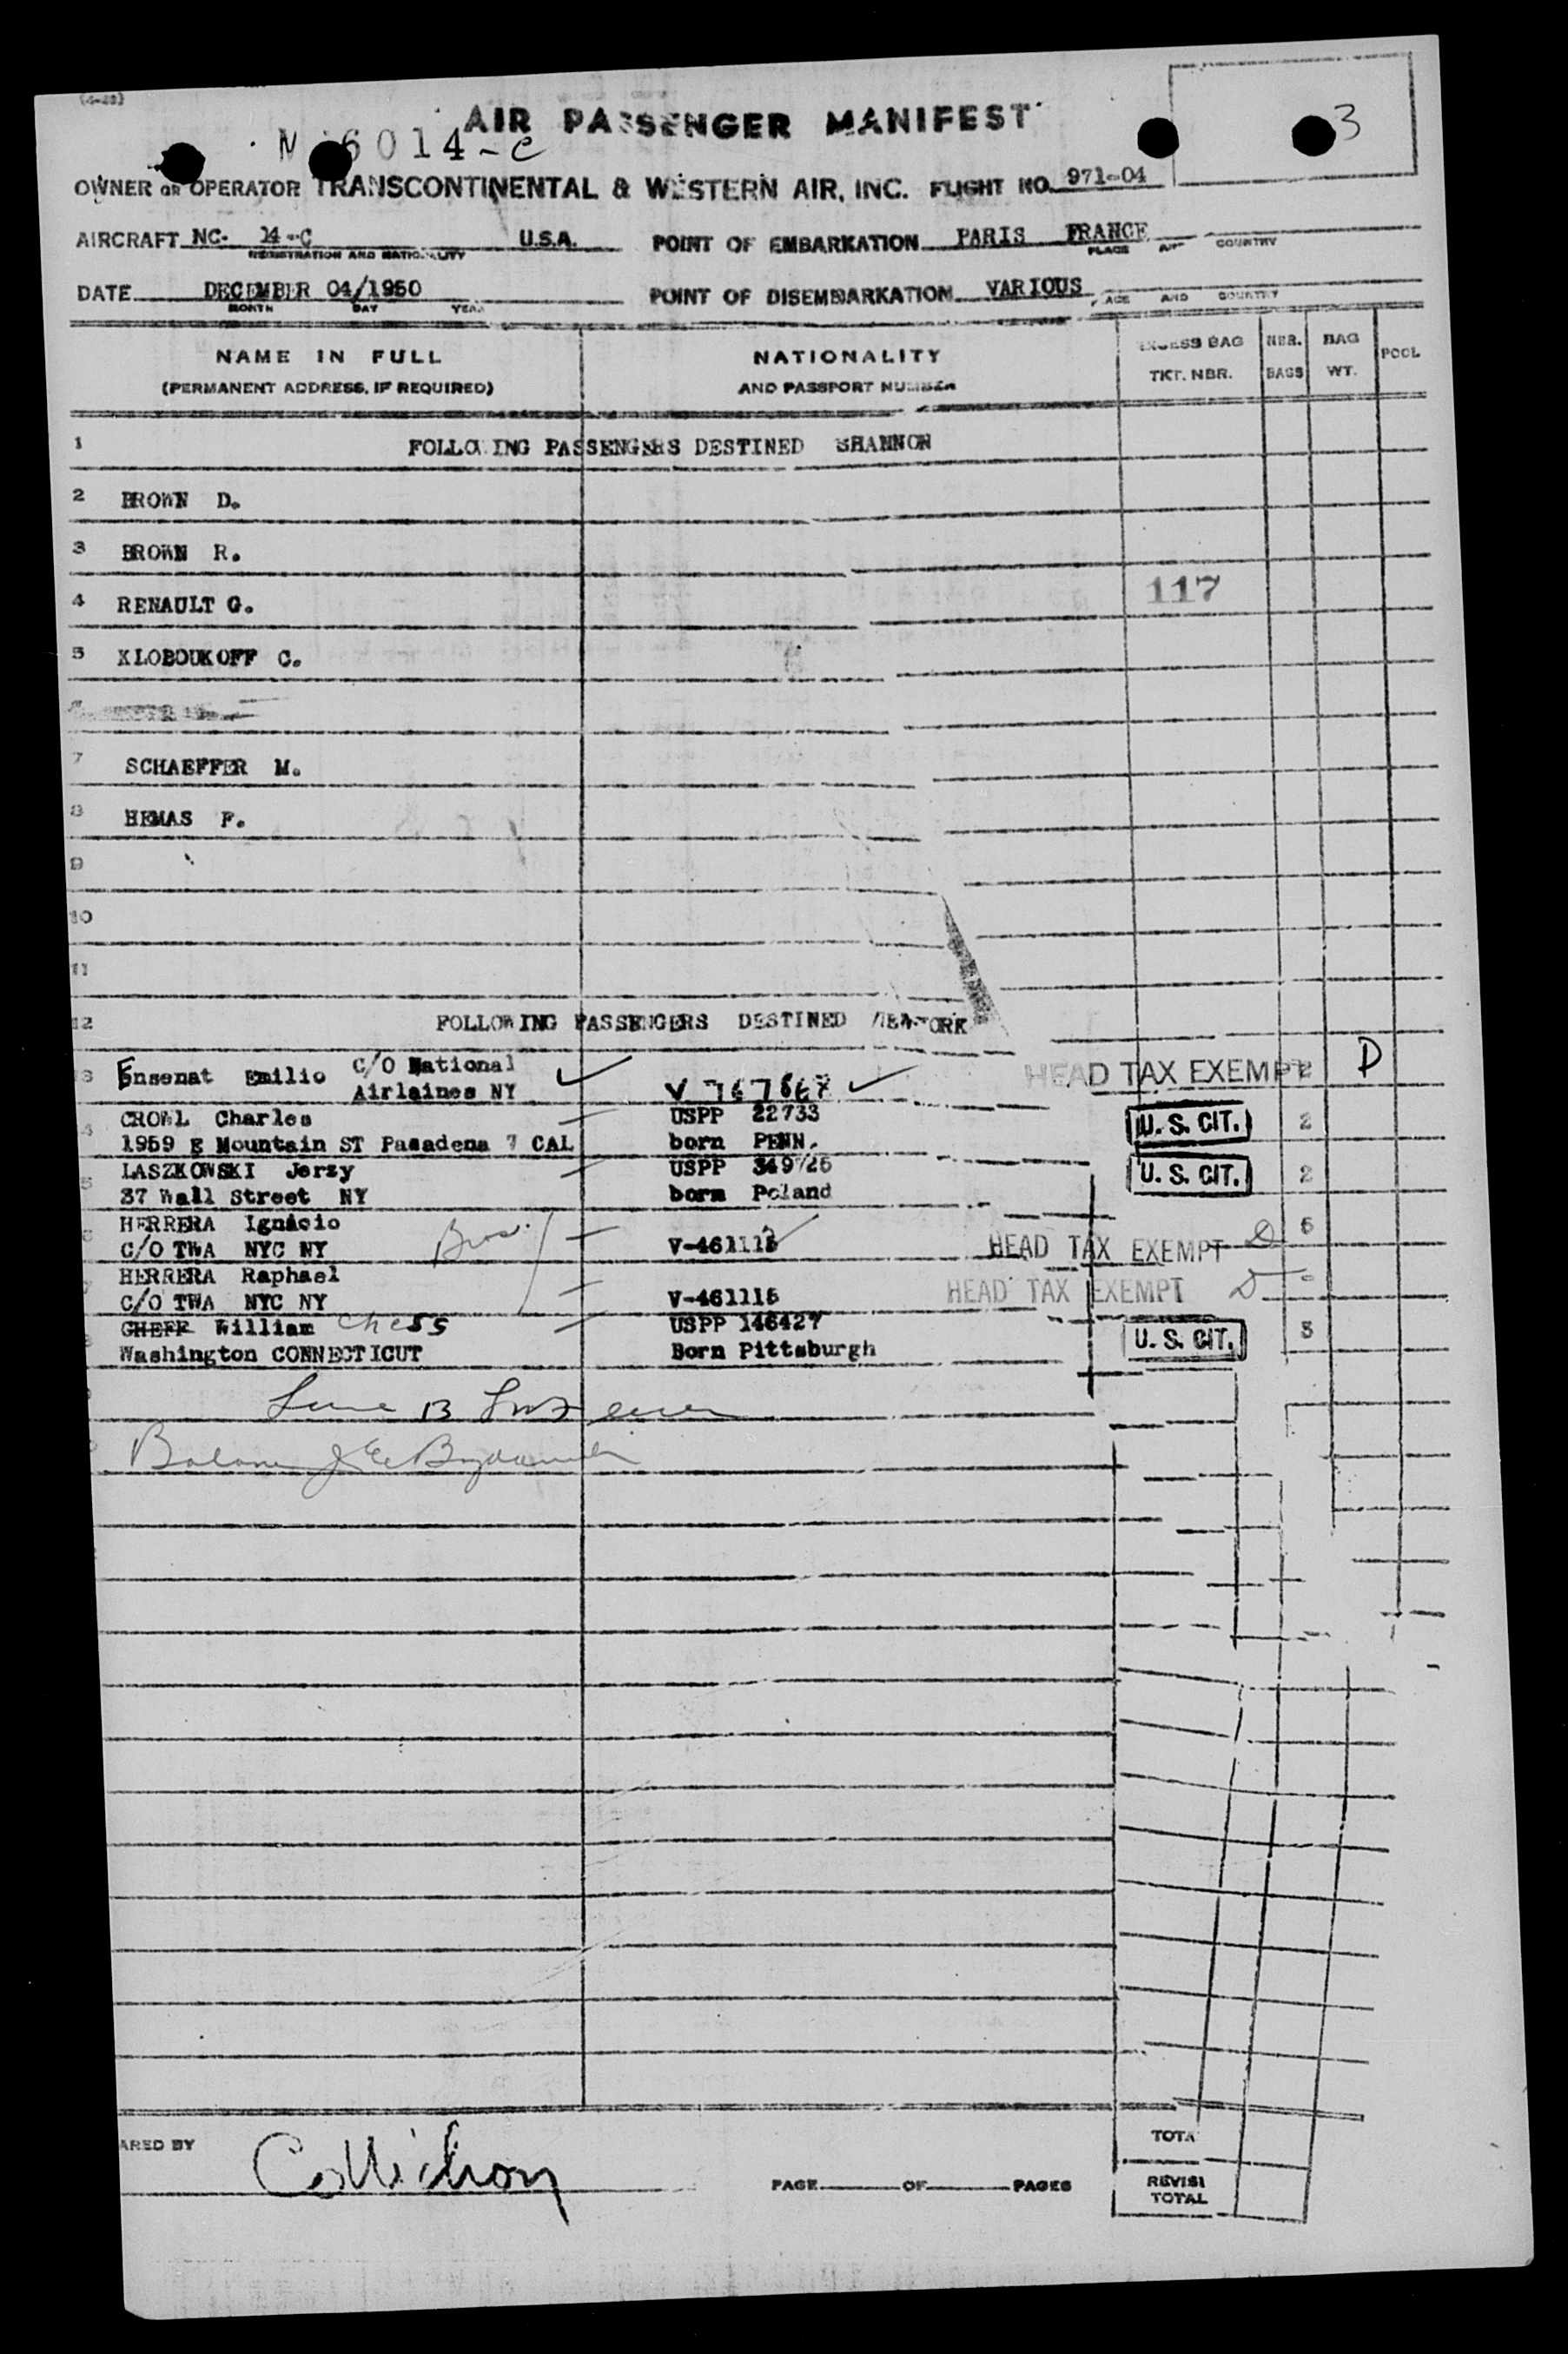 (4-48)
AIR PASSENGER MANIFEST
N 6014-C
3
OWNER OR OPERATOR TRANSCONTINENTAL & WESTERN AIR, INC. FLIGHT NO. 971-04
AIRCRAFT NC- 14-C U.S.A. POINT OF EMBARKATION PARIS FRANCE
REGISTRATION AND NATIONALITY PLACE AND COUNTRY
DATE DECEMBER 04/1950 POINT OF DISEMBARKATION VARIOUS
MONTH DAY YEAR PLACE AND COUNTRY
NAME IN FULL NATIONALITY EXCESS BAG NBR. BAG POOL
(PERMANENT ADDRESS, IF REQUIRED) AND PASSPORT NUMBER TKT. NBR. BAGS WT.
1 FOLLOWING PASSENGERS DESTINED SHANNON
2 BROWN D.
3 BROWN R.
4 RENAULT G. 117
5 KLOBOUKOFF C.
7 SCHAEFFER M.
8 HEMAS F.
9
10
11
12 FOLLOWING PASSENGERS DESTINED NEW-YORK
Ensenat Emilio C/O National HEAD TAX EXEMPT 2 D
Airlaines NY V 767667
CROWL Charles USPP 22733 U. S. CIT. 2
1959 E Mountain ST Pasadena 7 CAL born PENN.
LASZKOWSKI Jerzy USPP 349726 U. S. CIT. 2
37 Wall Street NY born Poland
HERRERA Ignacio Bros. 5
C/O TWA NYC NY V-461113 HEAD TAX EXEMPT D
HERRERA Raphael HEAD TAX EXEMPT D
C/O TWA NYC NY V-461115
GHEFF William Chess USPP 146427 U. S. CIT. 3
Washington CONNECTICUT Born Pittsburgh
ARED BY
PAGE OF PAGES
TOTA
REVISI
TOTAL